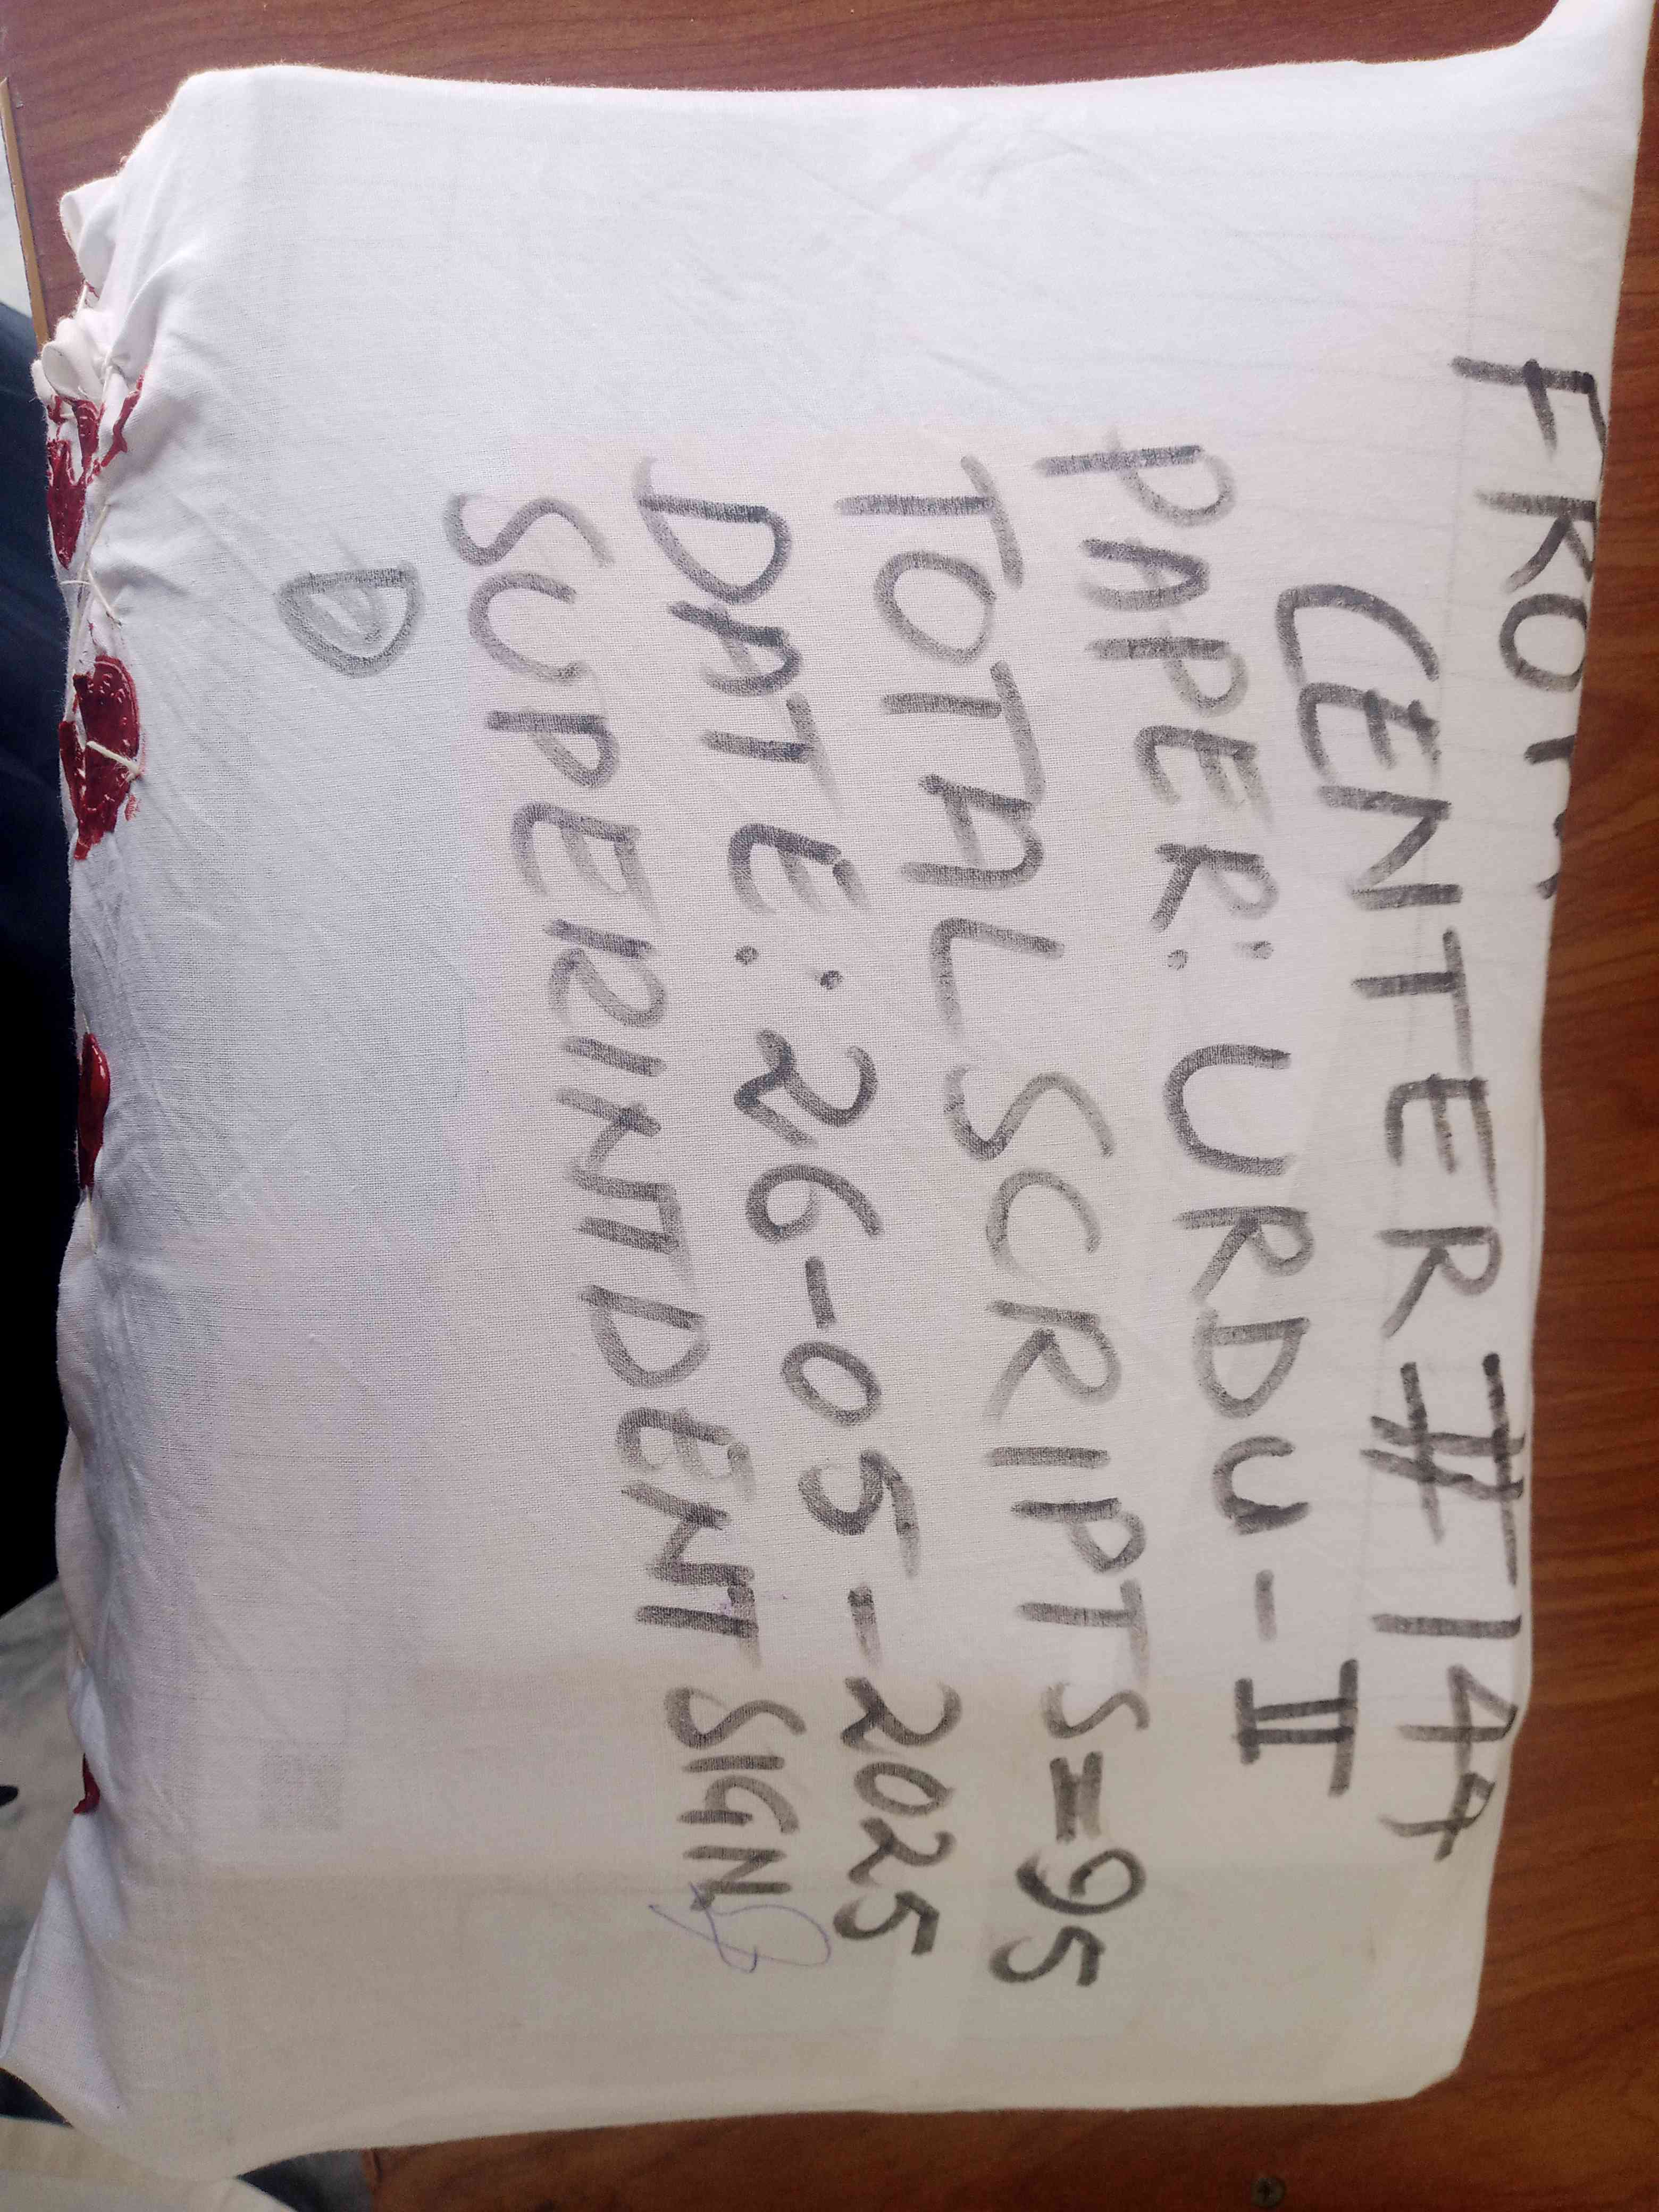 FROM
CENTER # 144
PAPER: URDU - II
TOTAL SCRIIPTS = 95
DATE: 26-05-2025
SUPERINTDENT SIGN